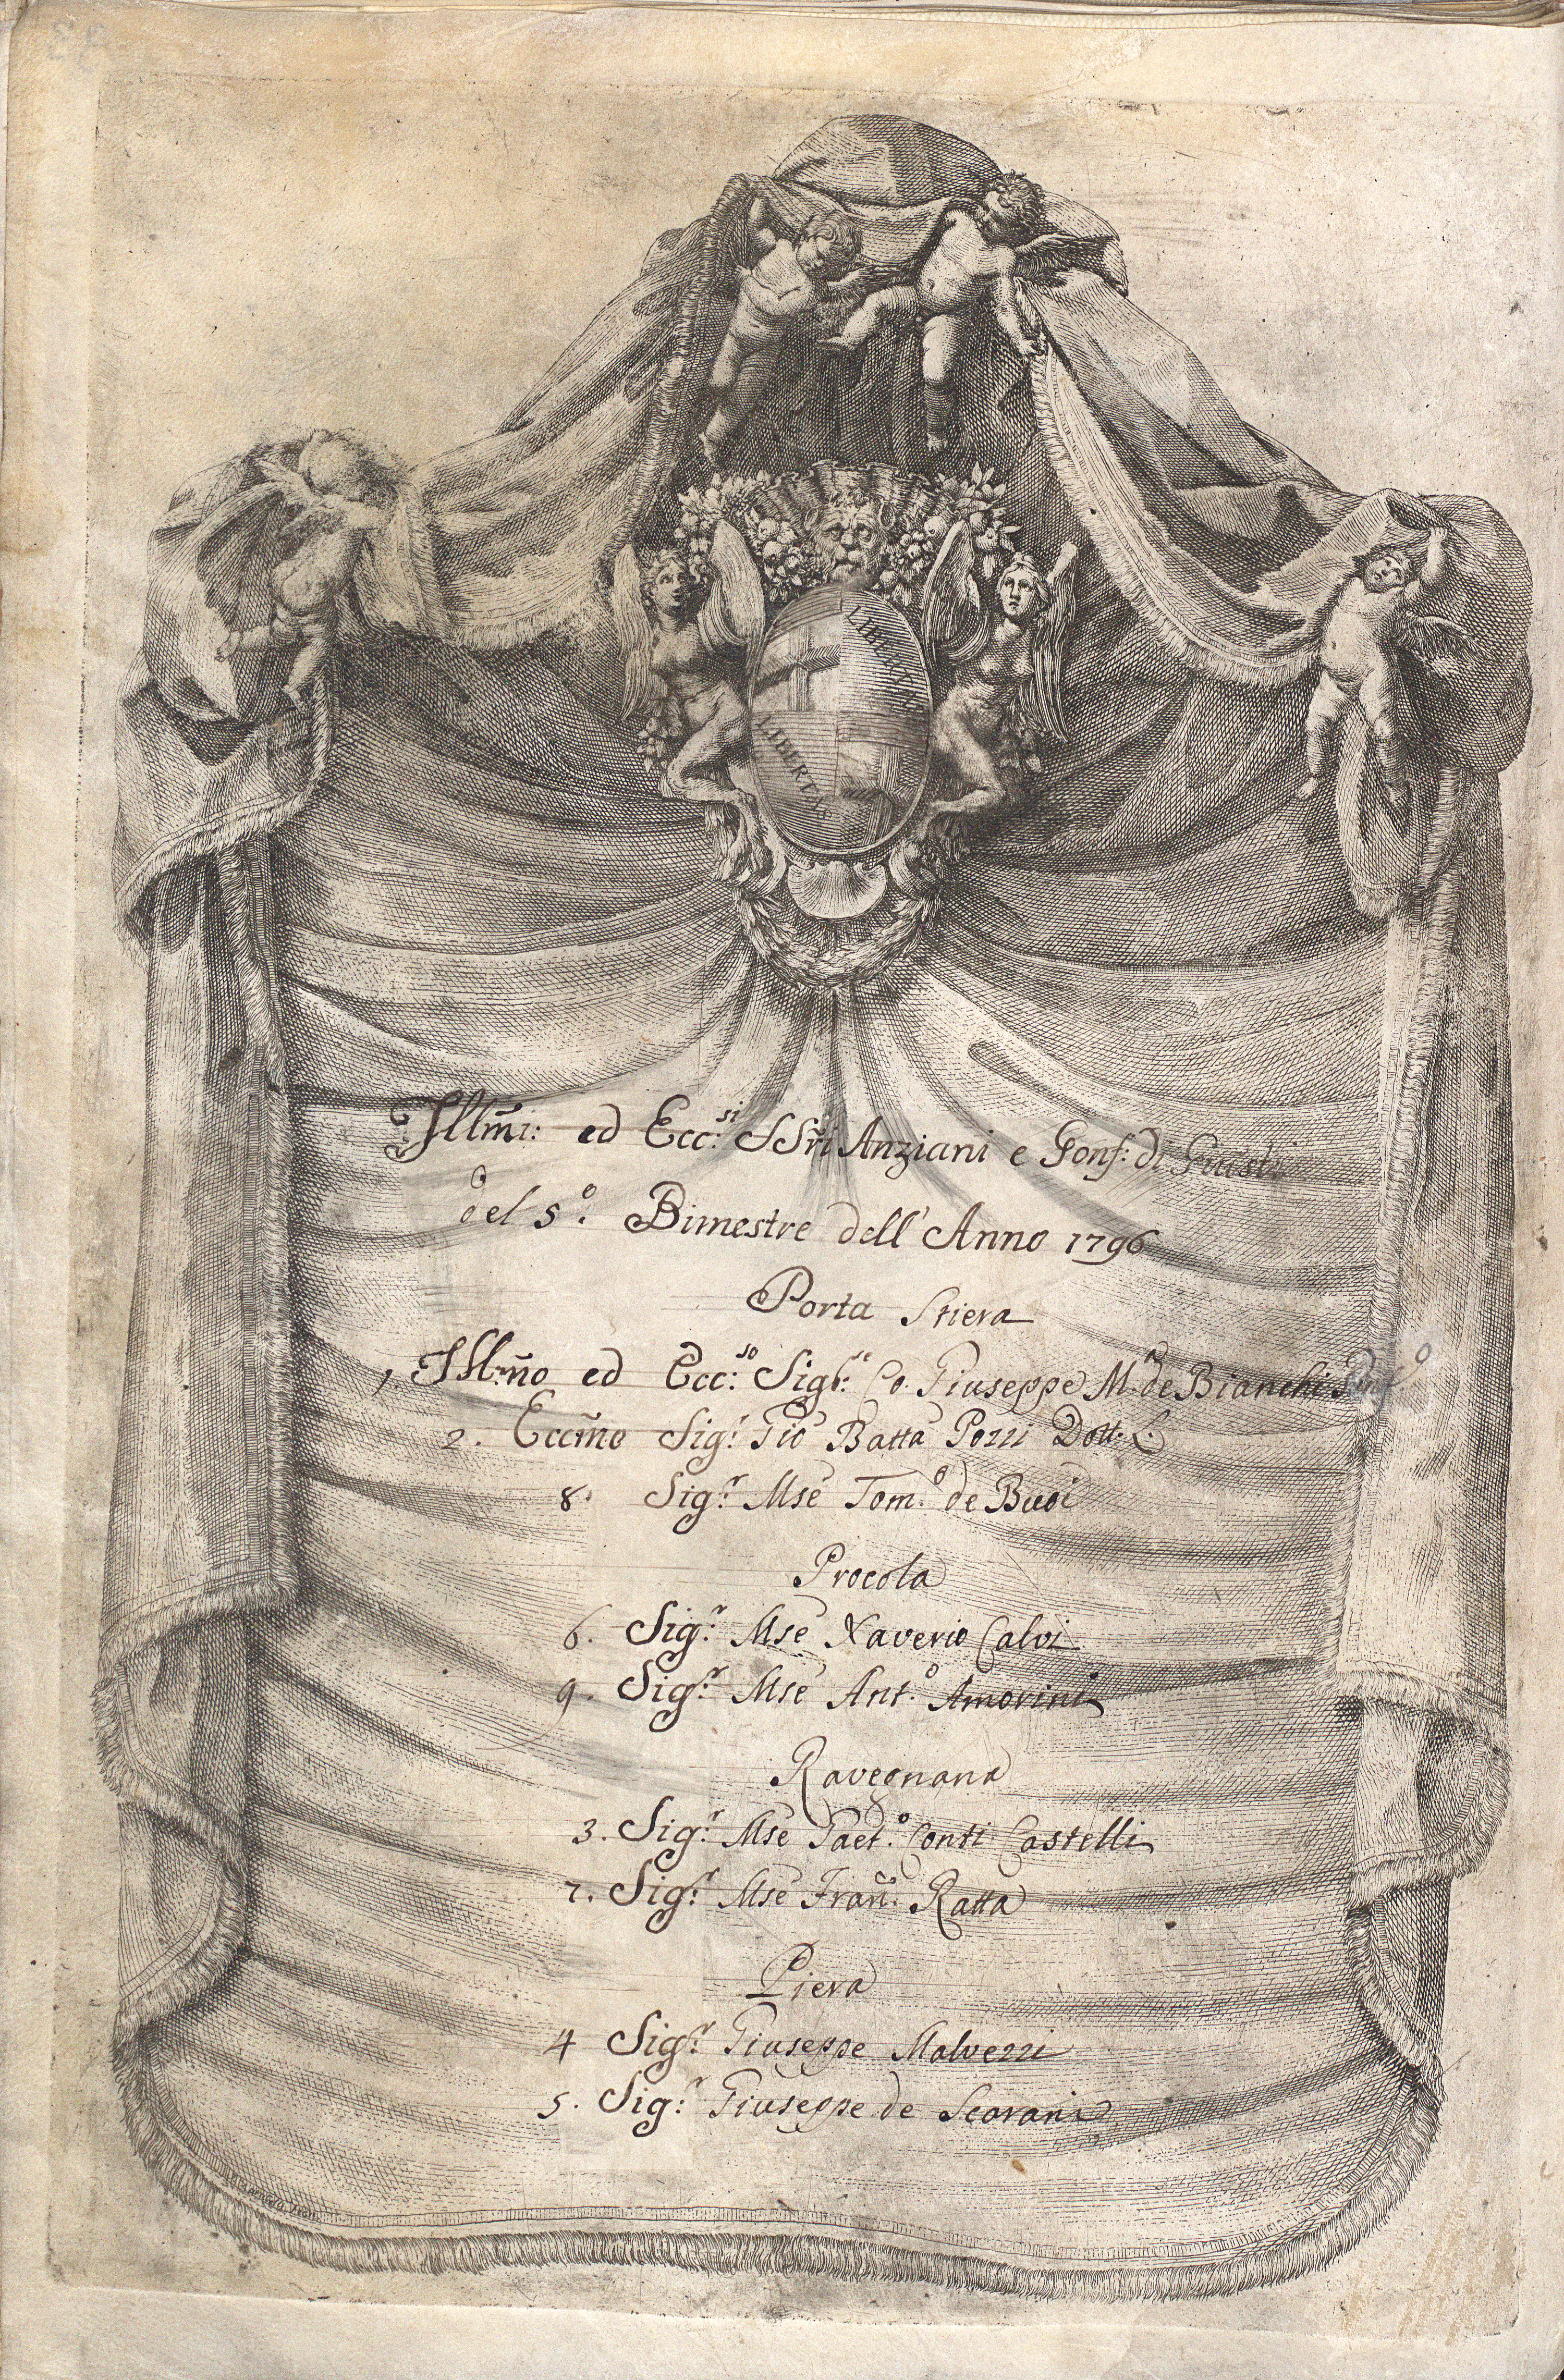 LIBERTAS
LIBERTAS
Illm̃i: ed Ecc:si SSri Anziani e Gonf: di Giust:
del 5.o Bimestre dell'Anno 1796
Porta Stiera
1. Illm̃o ed Ecc:so Sigr: Co. Giuseppe M.a de Bianchi
2. Eccm̃o Sig.r Gio Batta Pozzi Dott. L.
8. Sig.r Mse Tom.o de Buoi
Procola
6. Sig.r Mse Xaverio Calvi
9. Sig.r Mse Ant.o Amorini
Ravegnana
3. Sig.r Mse Gaet.o Conti Castelli
7. Sig.r Mse Fran.co Ratta
Piera
4 Sig.r Giuseppe Malvezzi
5. Sig.r Giuseppe de Scarani